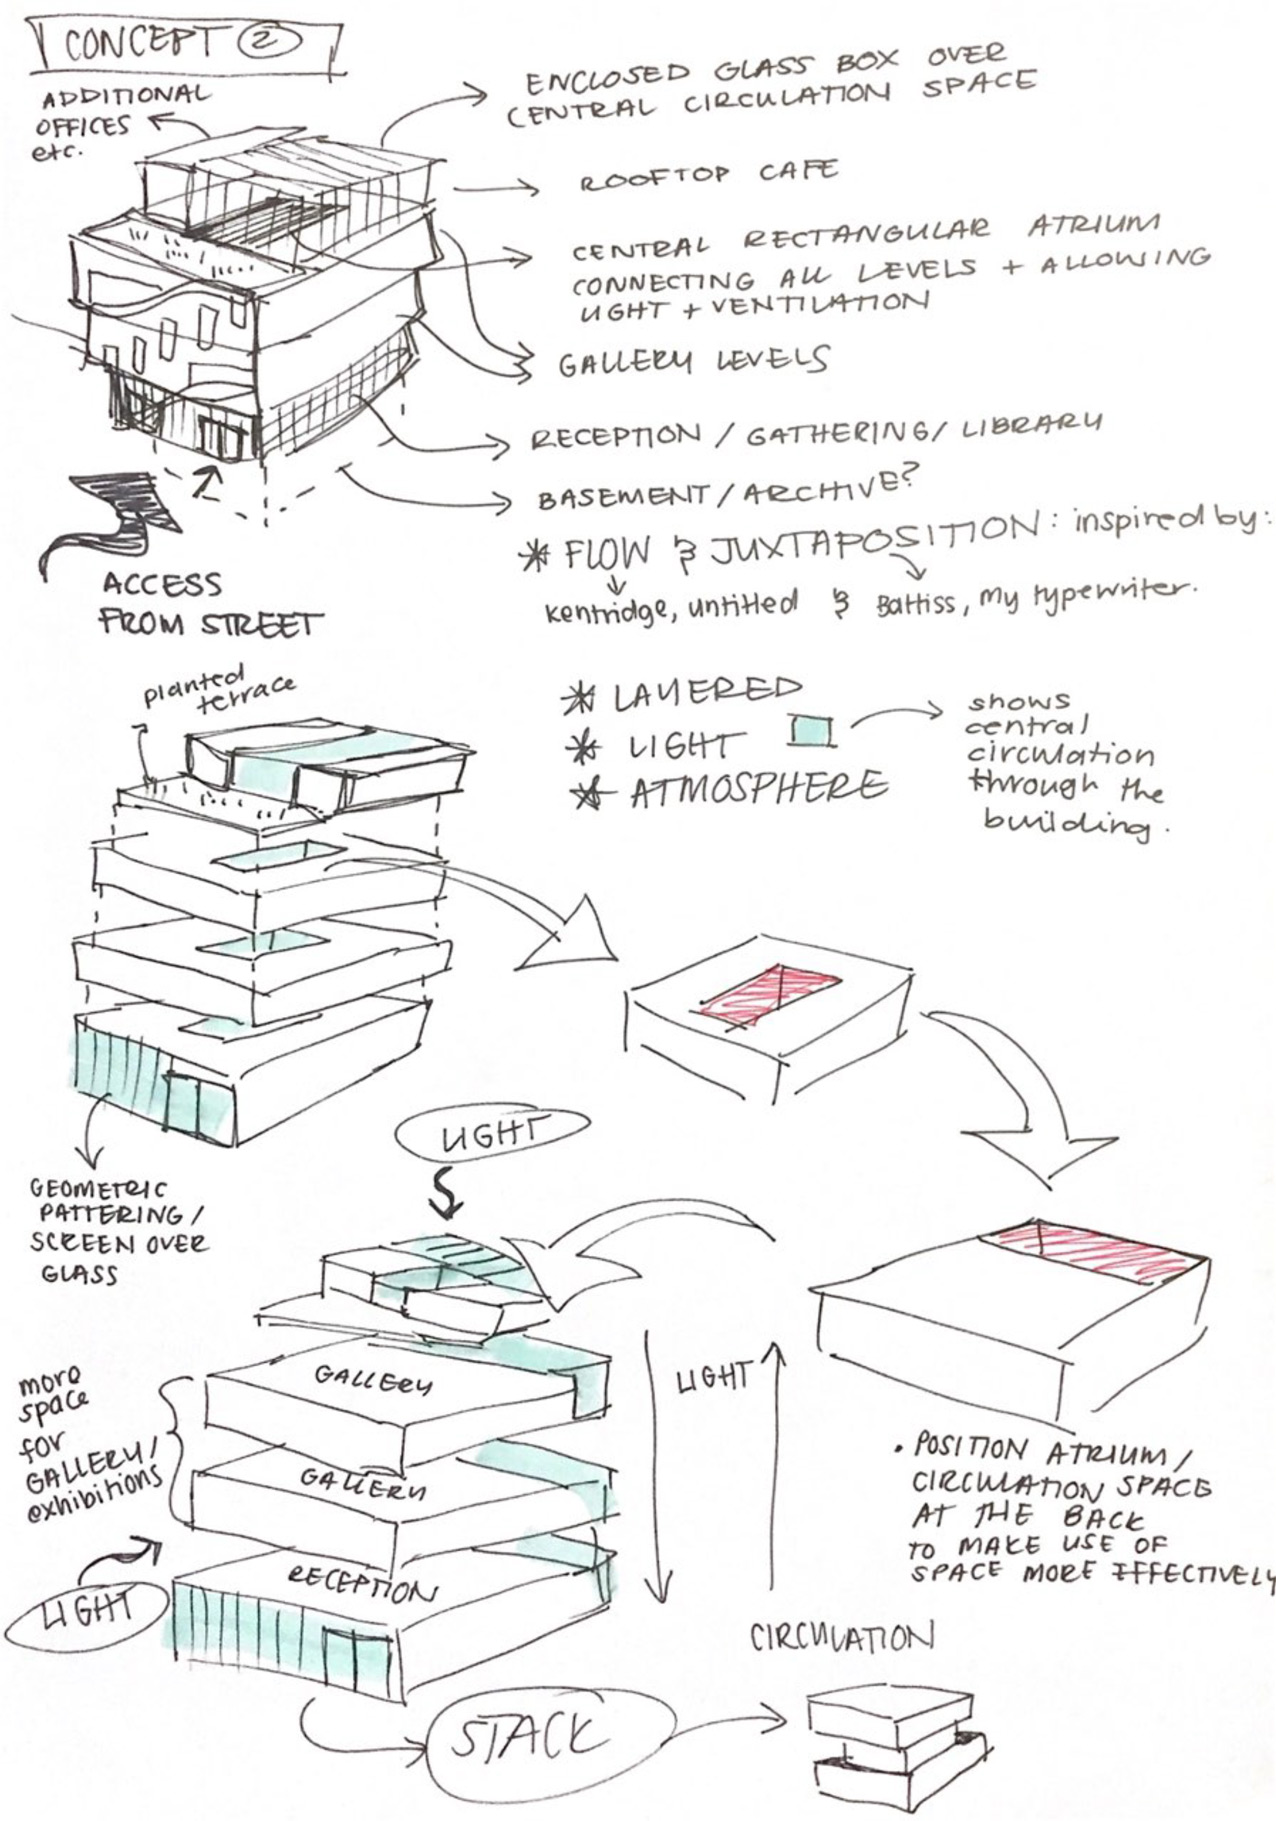 CONCEPT 2
ADDITIONAL
OFFICES
etc.
ENCLOSED GLASS BOX OVER
CENTRAL CIRCULATION SPACE
ROOFTOP CAFE
CENTRAL RECTANGULAR ATRIUM
CONNECTING ALL LEVELS + ALLOWING
LIGHT + VENTILATION
GALLERY LEVELS
RECEPTION / GATHERING / LIBRARY
BASEMENT / ARCHIVE?
* FLOW & JUXTAPOSITION: inspired by:
kentridge, untitled & Battiss, my typewriter.
ACCESS
FROM STREET
planted
terrace
* LAYERED
* LIGHT
* ATMOSPHERE
shows
central
circulation
through the
building.
GEOMETRIC
PATTERING /
SCREEN OVER
GLASS
LIGHT
more
space
for
GALLERY /
exhibitions
GALLERY
GALLERY
RECEPTION
LIGHT
LIGHT
• POSITION ATRIUM /
CIRCULATION SPACE
AT THE BACK
TO MAKE USE OF
SPACE MORE EFFECTIVELY
CIRCULATION
STACK